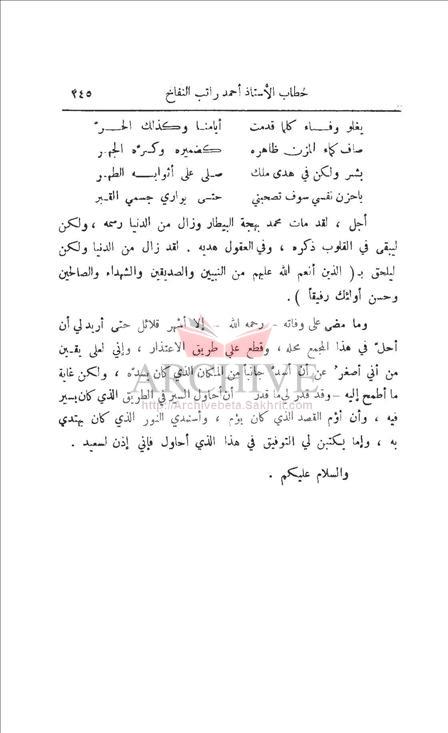 خطاب الأستاذ أحمد راتب النفاخ ٢٤٥
يغلو وفاء كلما قدمت أيامنا وكذلك الحر
صاف كماء المزن ظاهره كضميره وكسره الجهر
بشر ولكن في هدى ملك صلى على أثوابه الطهر
ياحزن نفسي سوف تصحبني حتى يواري جسمي القبر
أجل ، لقد مات محمد بهجة البيطار وزال من الدنيا رسمه ، ولكن
ليبقى في القلوب ذكره ، وفي العقول هديه . لقد زال من الدنيا ولكن
ليلحق بـ ( الذين أنعم الله عليهم من النبيين والصديقين والشهداء والصالحين
وحسن أولئك رفيقاً ) .
وما مضى على وفاته – رحمه الله – إلا أشهر قلائل حتى أريد لي أن
أحل في هذا المجمع محله ، وقطع علي طريق الاعتذار ، وإني لعلى يقين
من أني أصغر عن أن أسد جانباً من المكان الذي كان يسده ، ولكن غاية
ما أطمح إليه – وقد قدر لي ما قدر – أن أحاول السير في الطريق الذي كان يسير
فيه ، وأن أؤم القصد الذي كان يؤم ، وأستهدي النور الذي كان يهتدي
به ، وإما يكتبن لي التوفيق في هذا الذي أحاول فإني إذن لسعيد .
والسلام عليكم .
ARCHIVE
http://Archivebeta.Sakhrit.com